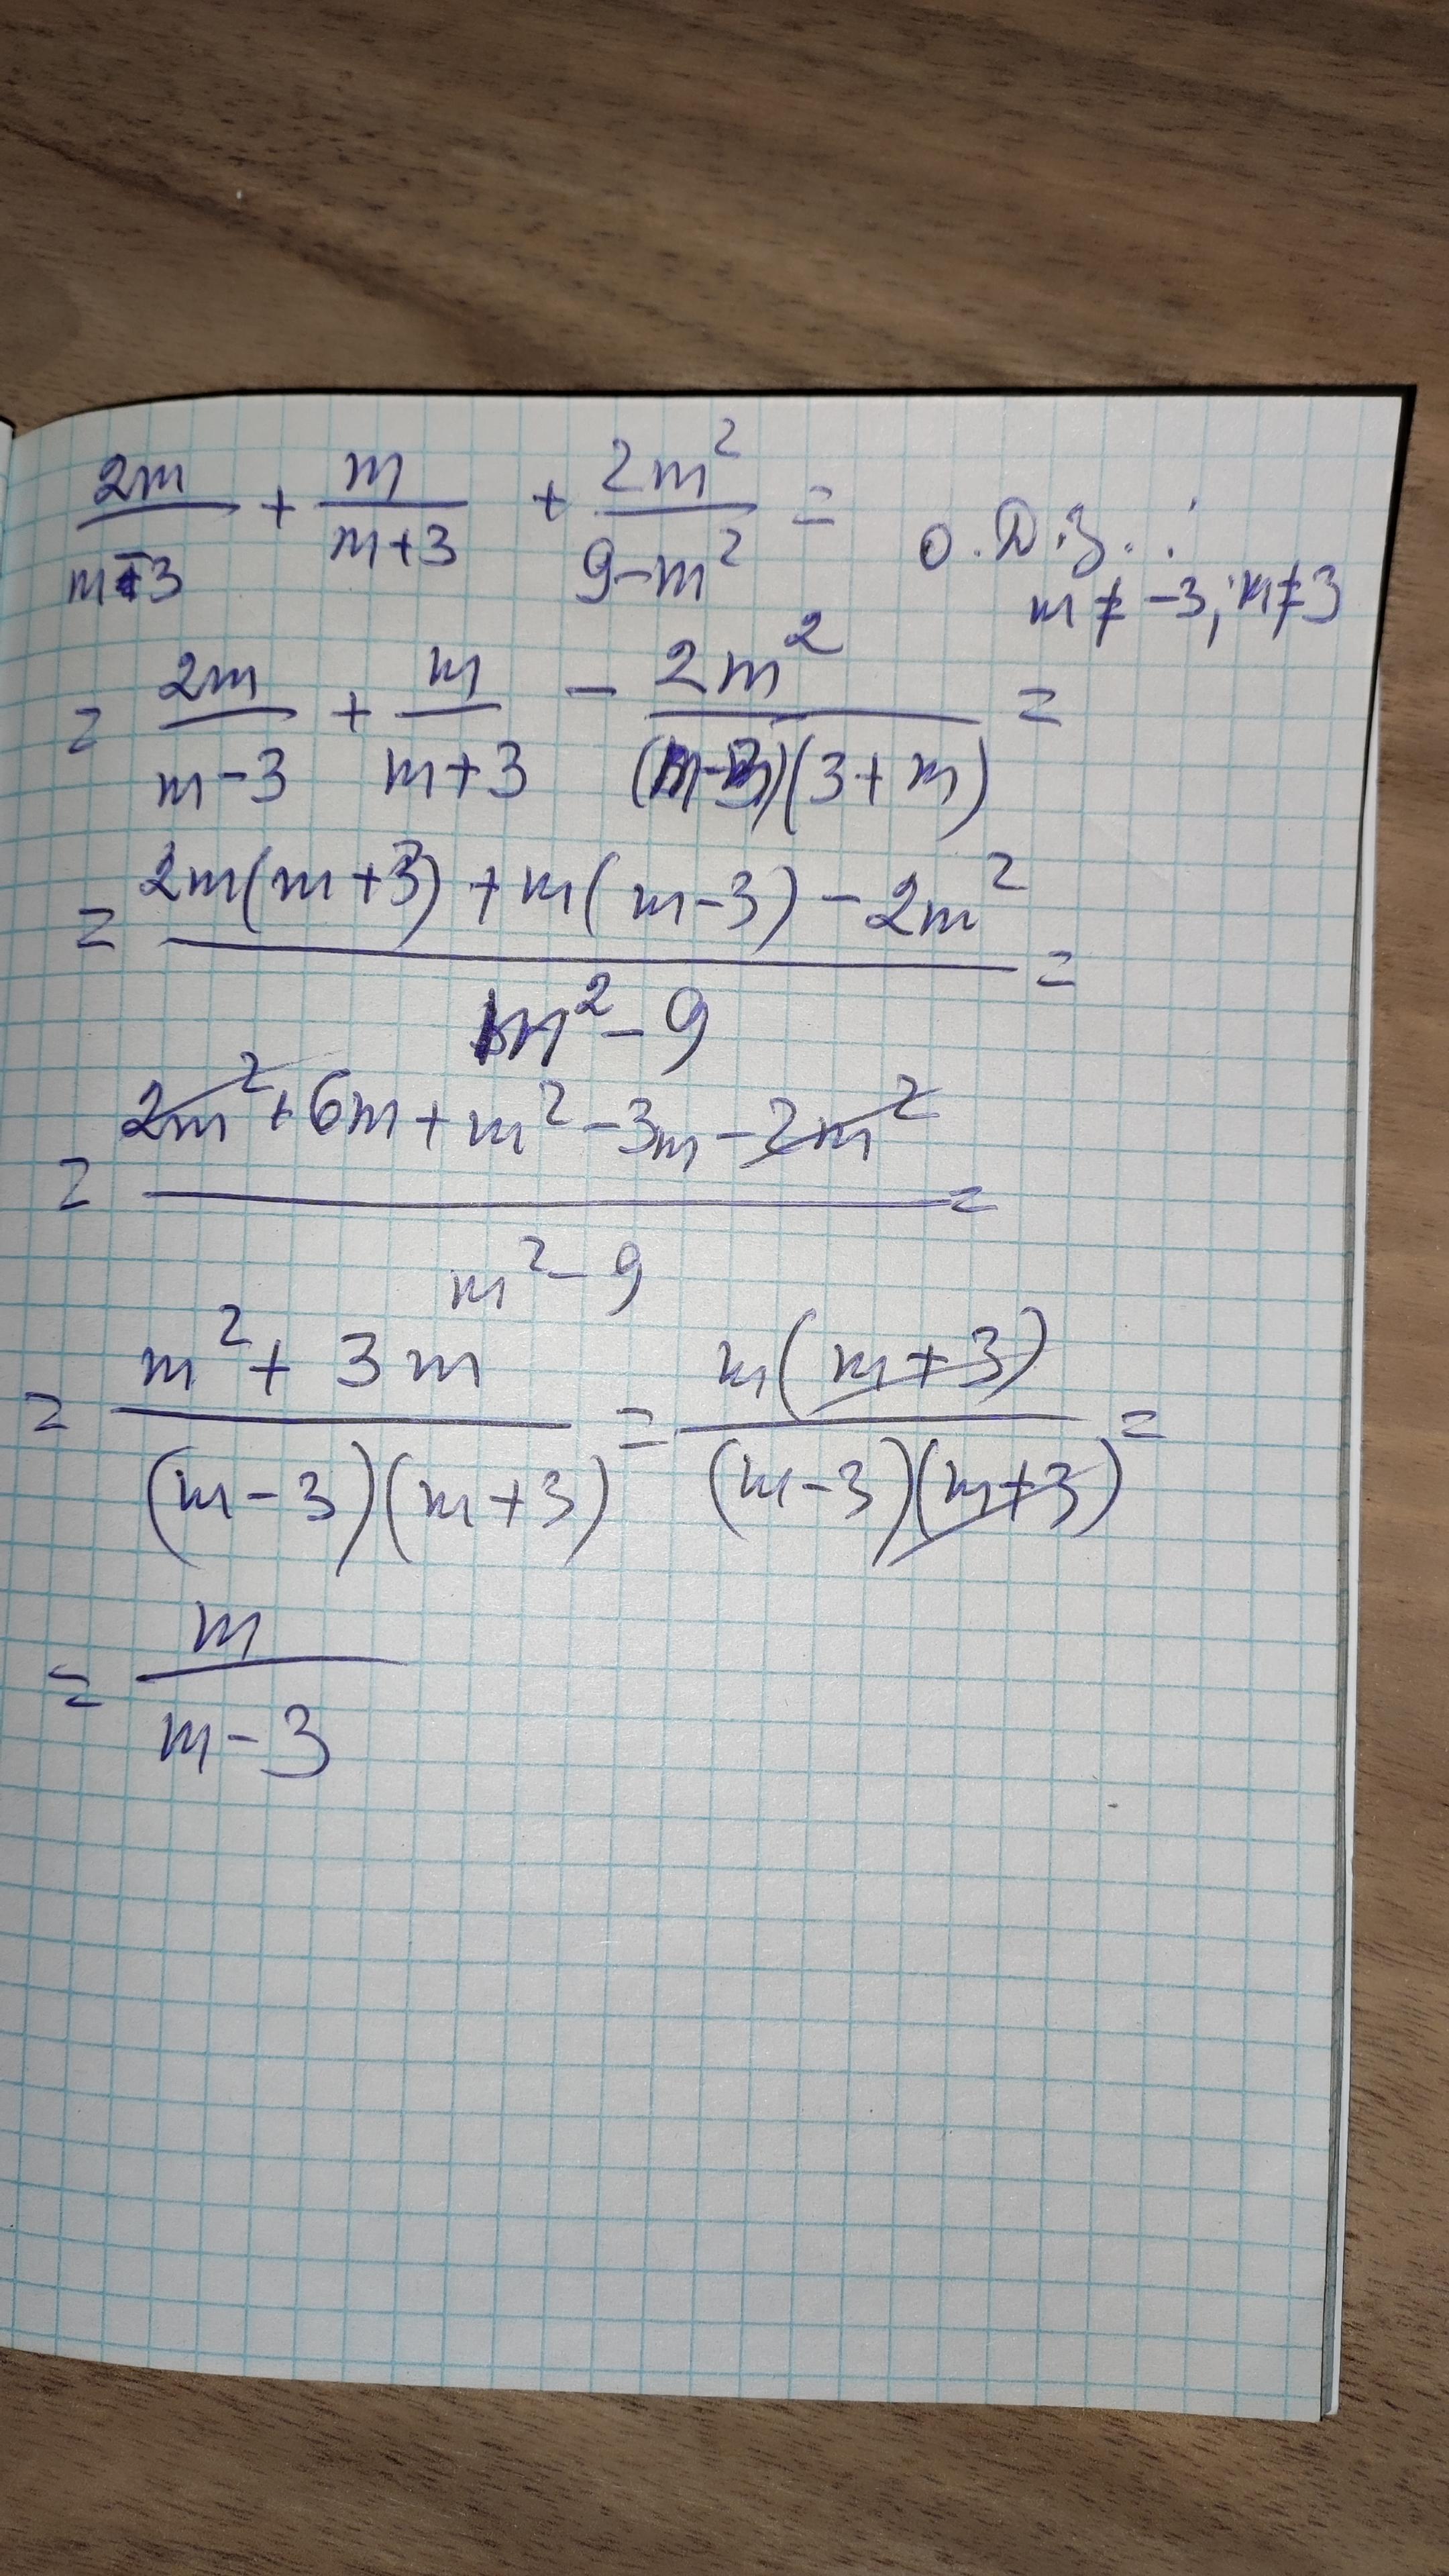 2m/(m-3) + m/(m+3) + 2m²/(9-m²) = О.Д.З.:
m ≠ -3, m ≠ 3
= 2m/(m-3) + m/(m+3) - 2m²/((m-3)(3+m)) =
= (2m(m+3) + m(m-3) - 2m²)/(m²-9) =
= (2m² + 6m + m² - 3m - 2m²)/(m²-9) =
= (m² + 3m)/((m-3)(m+3)) = m(m+3)/((m-3)(m+3)) =
= m/(m-3)